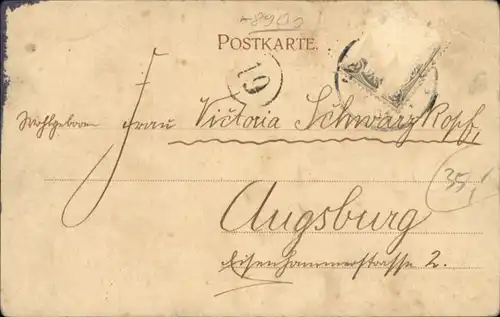 POSTKARTE.
19
Wohlgeboren Frau Victoria Schwarzkopf,
35,
Augsburg
Eisenhammerstrasse 2.